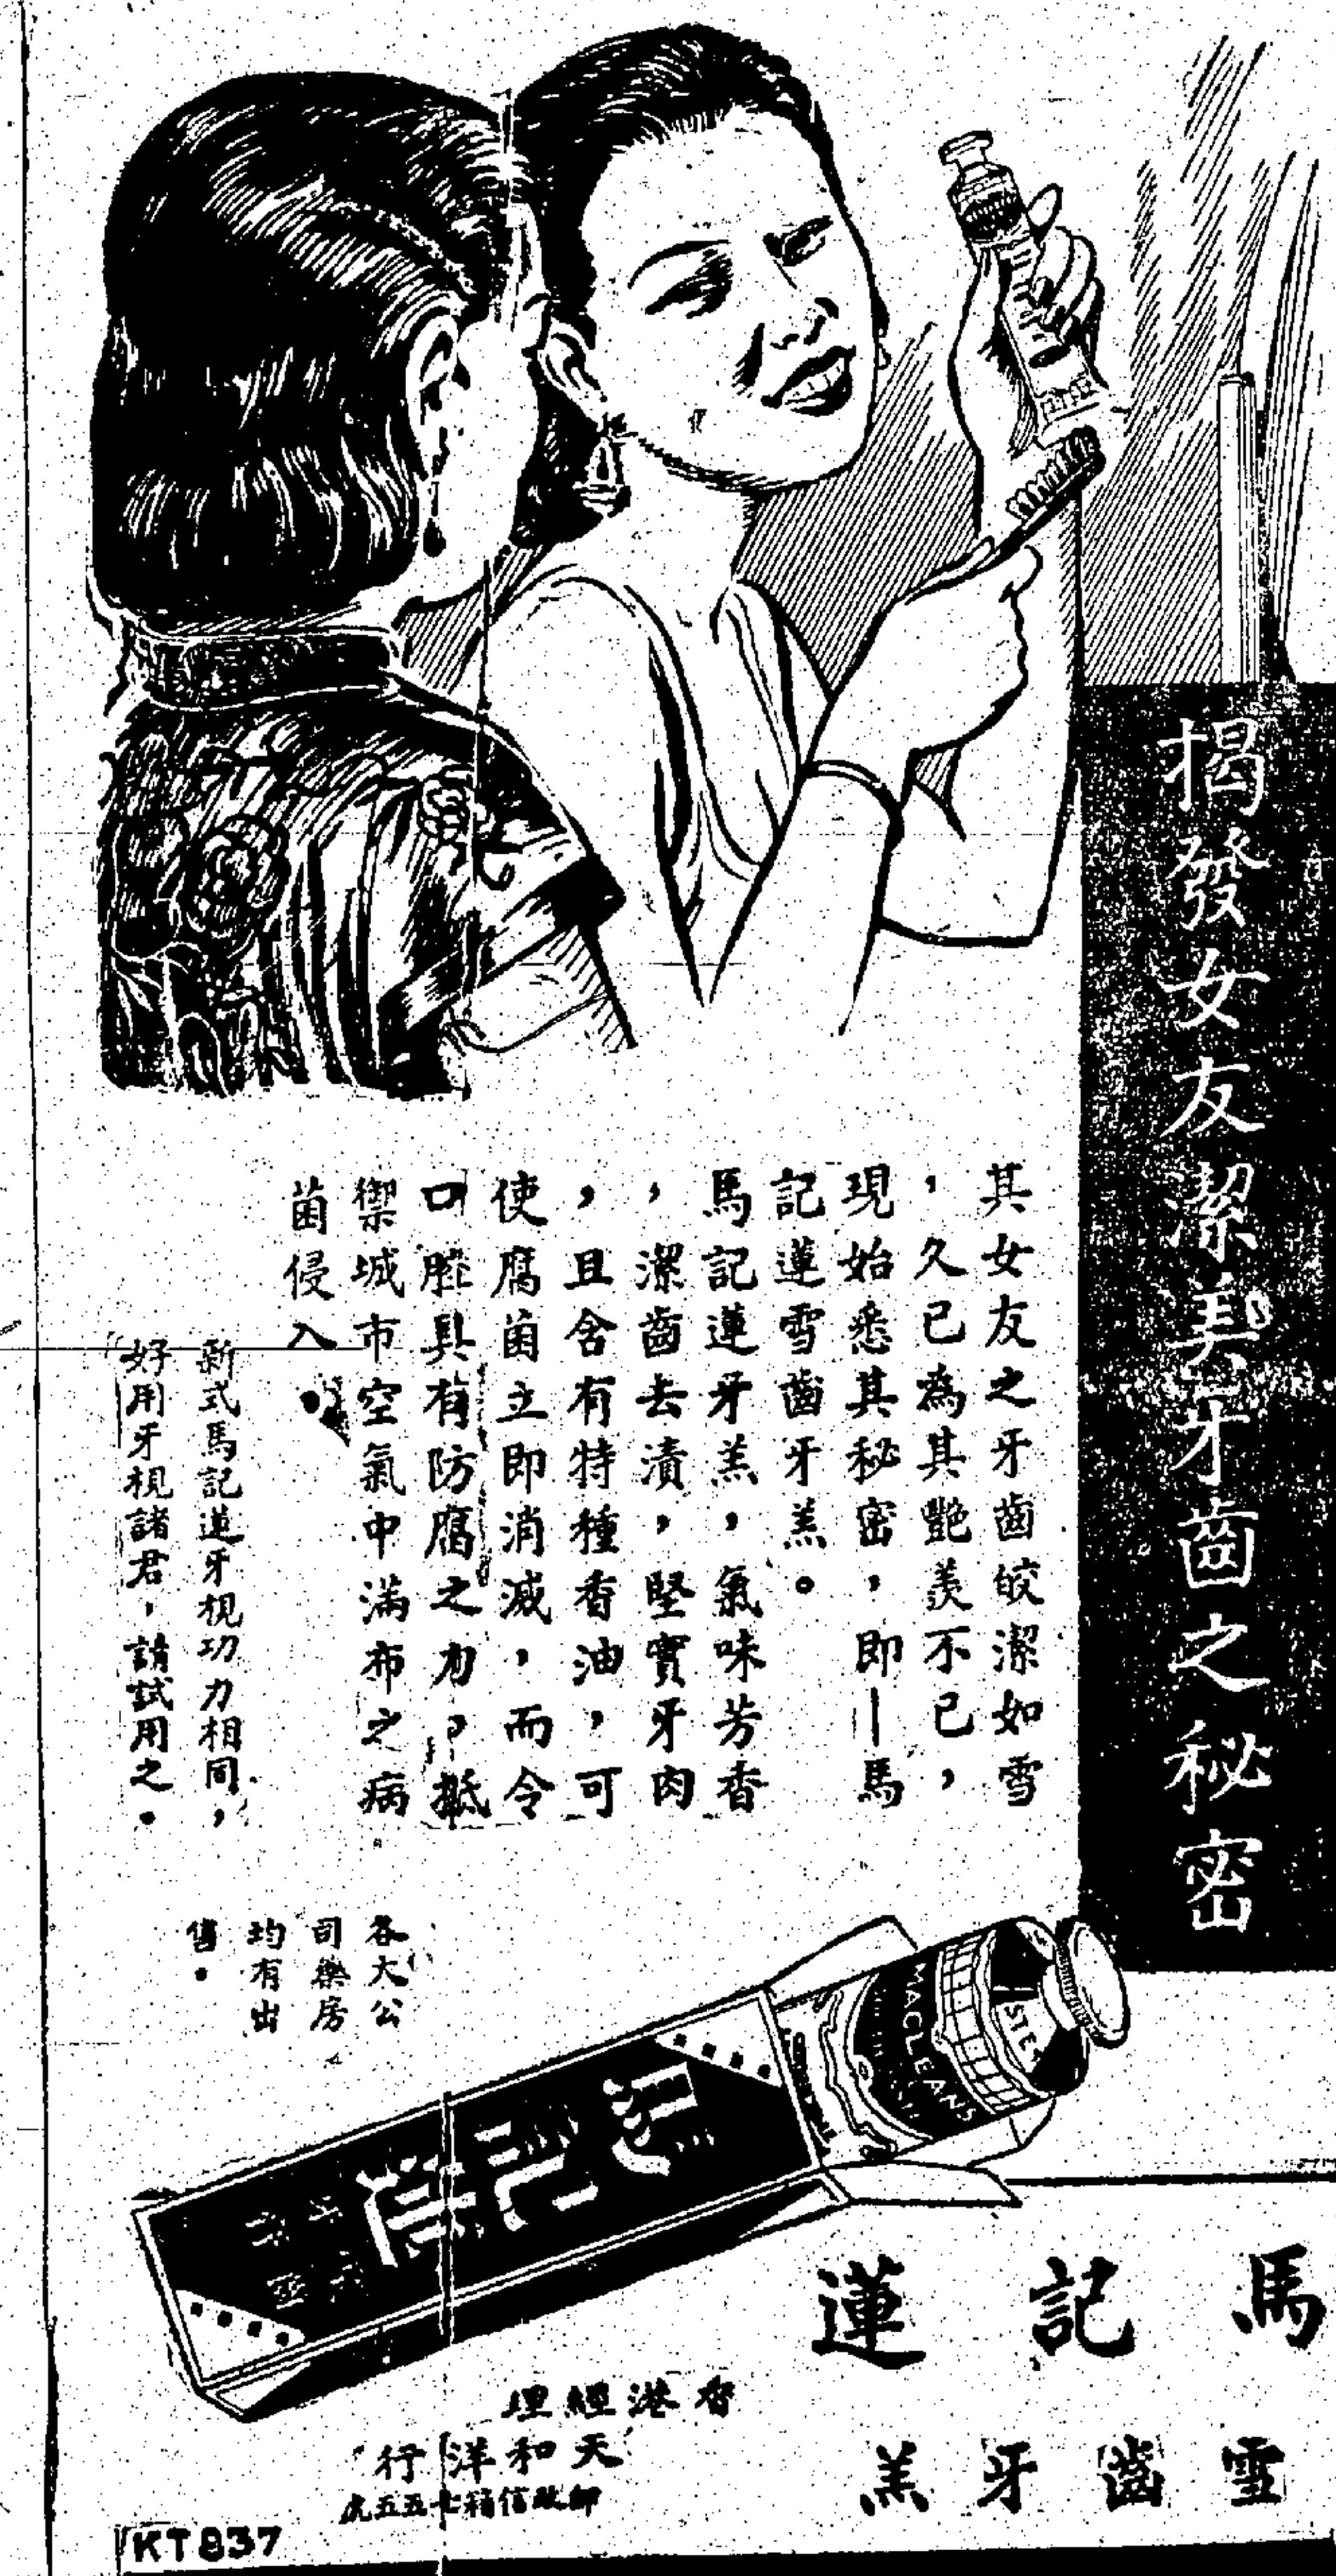 揭發女友潔美牙齒之秘密
其女友之牙齒皎潔如雪
，久已為其艷羨不已，
現始悉其秘密，即—馬
記蓮雪齒牙羔。
馬記蓮牙羔，氣味芳香
，潔齒去漬，堅實牙肉
，且含有特種香油，可
使腐菌立即消滅，而令
口腔具有防腐之力，抵
禦城市空氣中滿布之病
菌侵入。
新式馬記蓮牙梘功力相同，
好用牙梘諸君，請試用之。
各大公
司藥房
均有出
售。
MACLEANS
馬記蓮
馬記蓮
雪齒牙羔
香港經理
天和洋行
郵政信箱七五五號
KT837